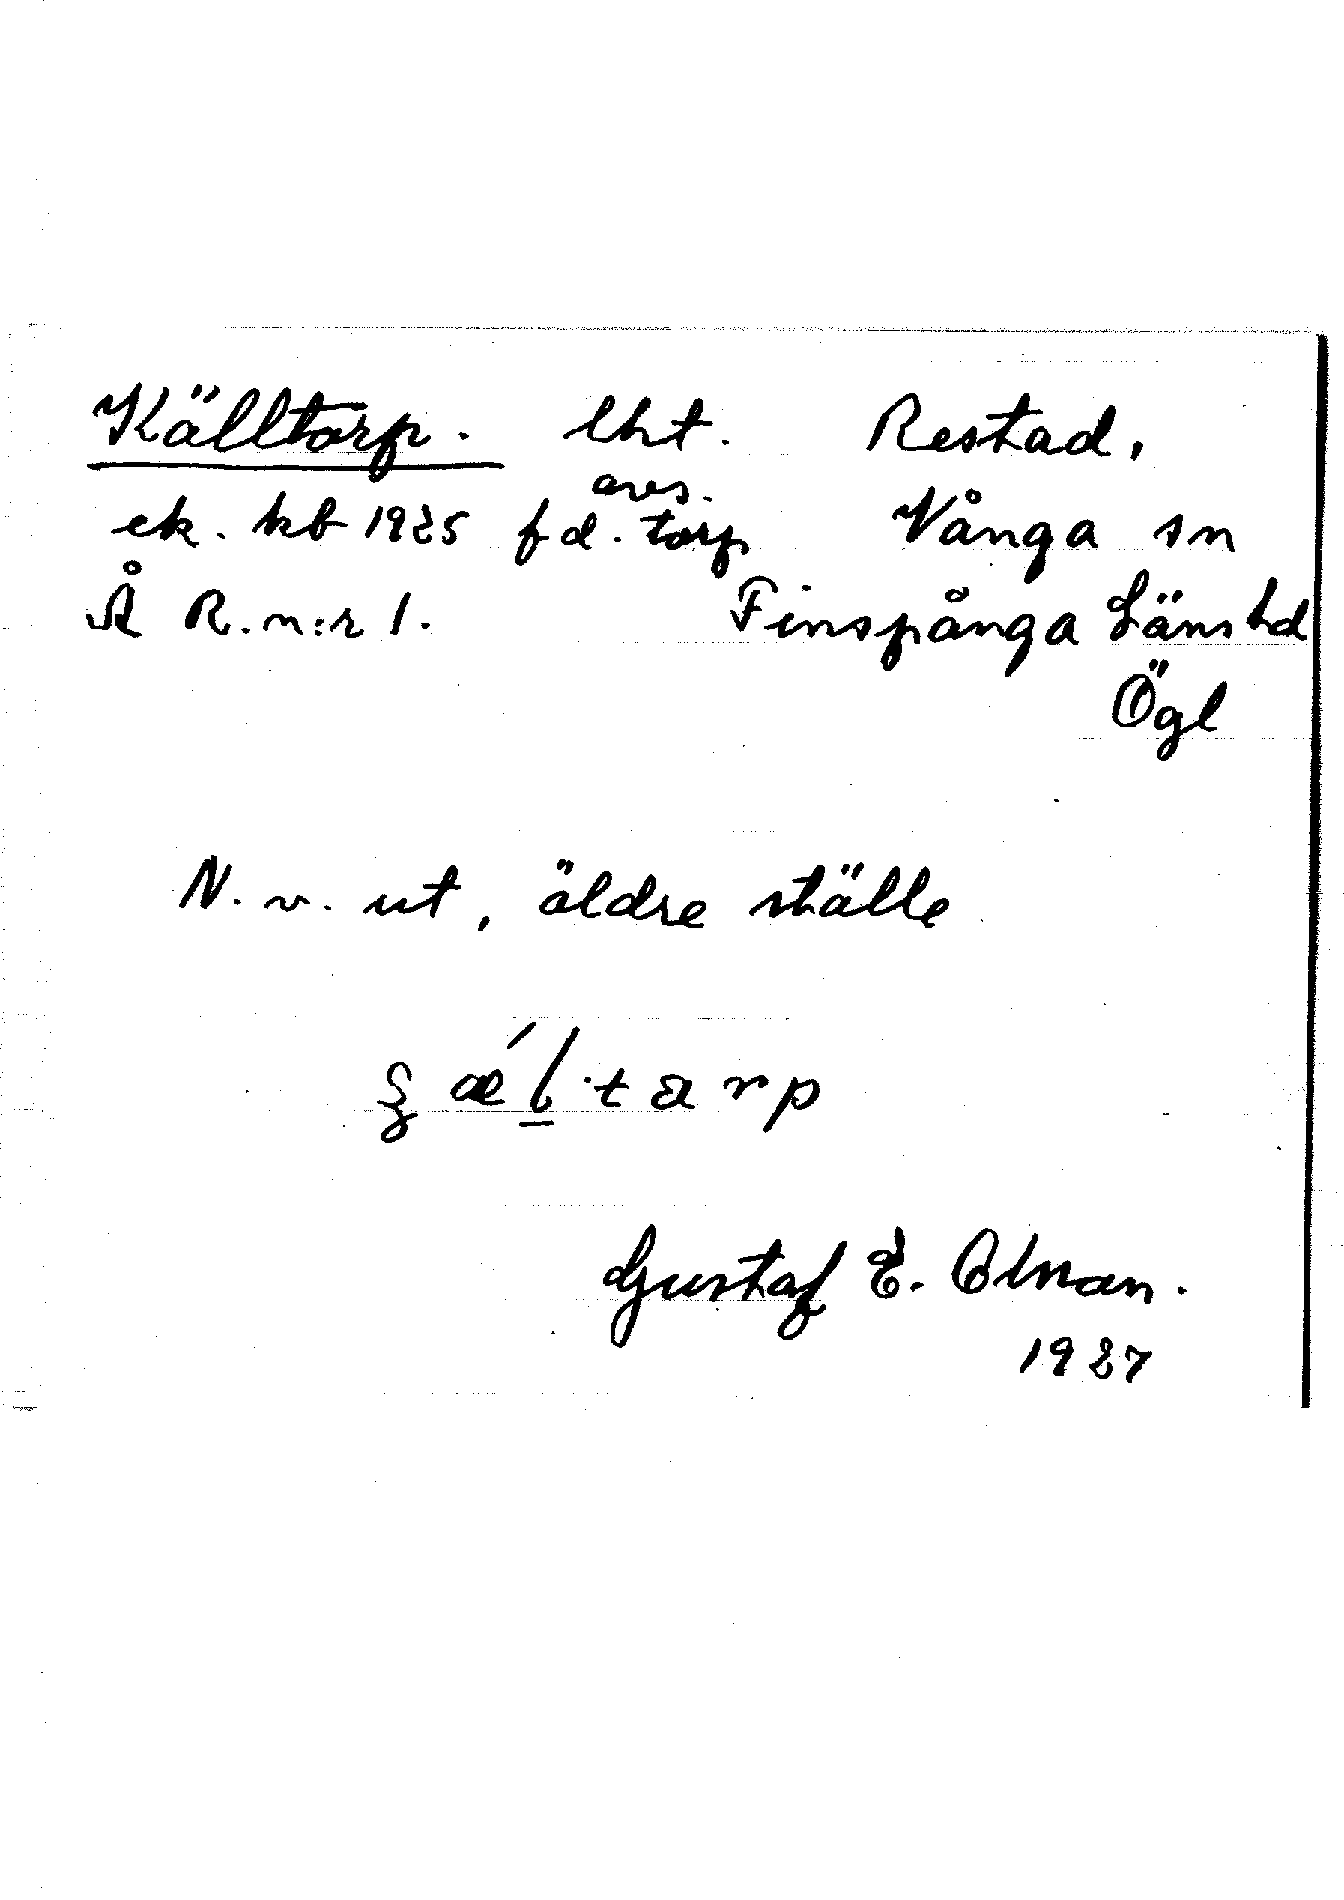 Källtorp. lht. Restad,
avs.
ek. kb 1925 f d. torp Vånga sn
Å R. n:r 1. Finspånga Läns hd
Ögl
N. v. ut, äldre ställe
Gustaf E. Olman.
1927